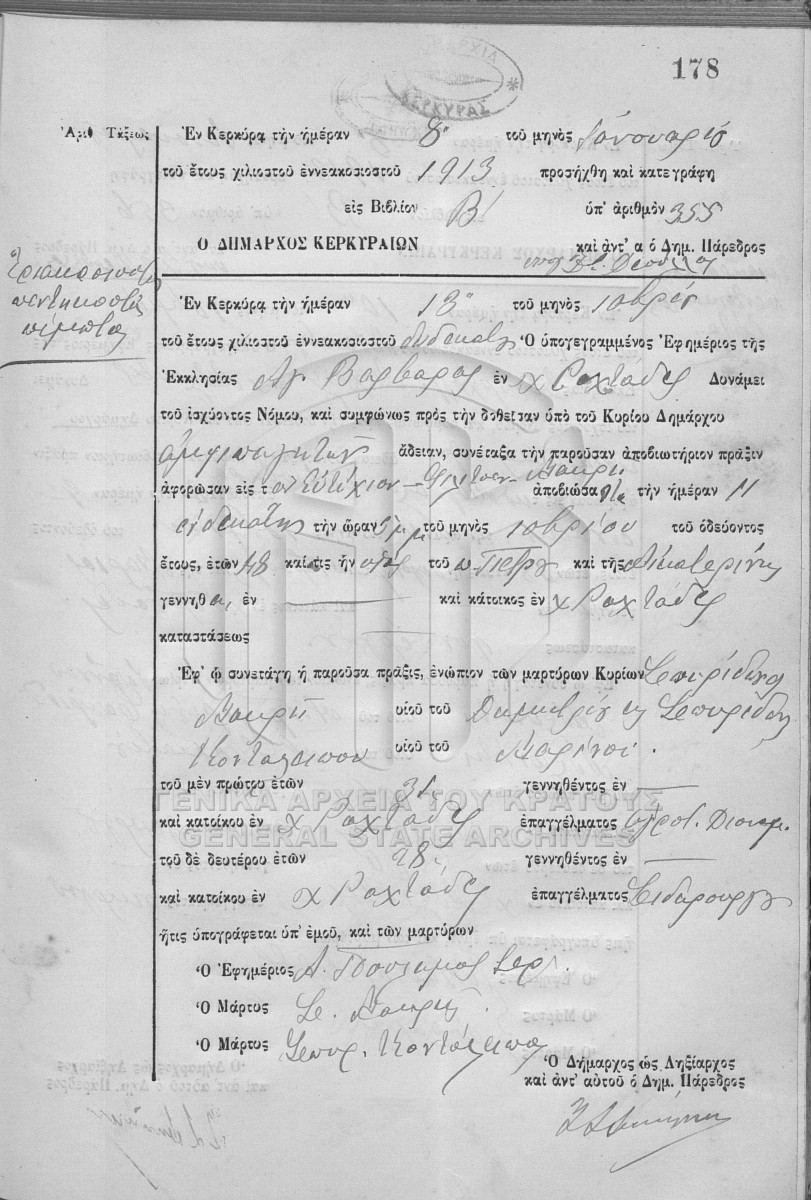 178
ΚΕΡΚΥΡΑΣ
Ἀριθ Τάξεως
Ἐν Κερκύρᾳ τὴν ἡμέραν 8η τοῦ μηνὸς Ἰανουαρίου
τοῦ ἔτους χιλιοστοῦ ἐννεακοσιοστοῦ 1913 προσήχθη καὶ κατεγράφη
εἰς Βιβλίον Β' ὑπ' ἀριθμὸν 355
Ο ΔΗΜΑΡΧΟΣ ΚΕΡΚΥΡΑΙΩΝ καὶ ἀντ' α ὁ Δημ. Πάρεδρος
τριακοσιοστὴ
πεντηκοστὴ
πέμπτη
Ἐν Κερκύρᾳ τὴν ἡμέραν 13η τοῦ μηνὸς
τοῦ ἔτους χιλιοστοῦ ἐννεακοσιοστοῦ Ὁ ὑπογεγραμμένος Ἐφημέριος τῆς
Ἐκκλησίας Ἁγ. Βαρβάρας ἐν χ Ραχτάδες Δυνάμει
τοῦ ἰσχύοντος Νόμου, καὶ συμφώνως πρὸς τὴν δοθεῖσαν ὑπὸ τοῦ Κυρίου Δημάρχου
ἄδειαν, συνέταξα τὴν παροῦσαν ἀποβιωτήριον πρᾶξιν
ἀφορῶσαν εἰς τὸν Εὐτύχιον Μακρῆ ἀποβιώσαντα τὴν ἡμέραν 11
ἑνδεκάτην τὴν ὥραν 5 μ μ τοῦ μηνὸς 10βρίου τοῦ ὁδεύοντος
ἔτους, ἐτῶν 48 καὶ τις ἦν υἱὸς τοῦ π. Πέτρου καὶ τῆς Αἰκατερίνης
γεννηθ ἐν καὶ κάτοικος ἐν χ Ραχτάδες
καταστάσεως
Ἐφ' ᾧ συνετάγη ἡ παροῦσα πρᾶξις, ἐνώπιον τῶν μαρτύρων Κυρίων Σπυρίδωνα
Μακρῆ υἱοῦ τοῦ Δημητρίου κ Σπυρίδων
υἱοῦ τοῦ Μαρίνου.
τοῦ μὲν πρώτου ἐτῶν 31 γεννηθέντος ἐν
καὶ κατοίκου ἐν χ Ραχτάδες ἐπαγγέλματος
τοῦ δὲ δευτέρου ἐτῶν 28 γεννηθέντος ἐν
καὶ κατοίκου ἐν χ Ραχτάδες ἐπαγγέλματος Σιδηρουργ
ἥτις ὑπογράφεται ὑπ' ἐμοῦ, καὶ τῶν μαρτύρων
Ὁ Ἐφημέριος Α.
Ὁ Μάρτυς Σπ. Μακρῆς.
Ὁ Μάρτυς Σπυρ.
Ὁ Δήμαρχος ὡς Ληξίαρχος
καὶ ἀντ' αὐτοῦ ὁ Δημ. Πάρεδρος
ΓΕΝΙΚΑ ΑΡΧΕΙΑ ΤΟΥ ΚΡΑΤΟΥΣ
GENERAL STATE ARCHIVES